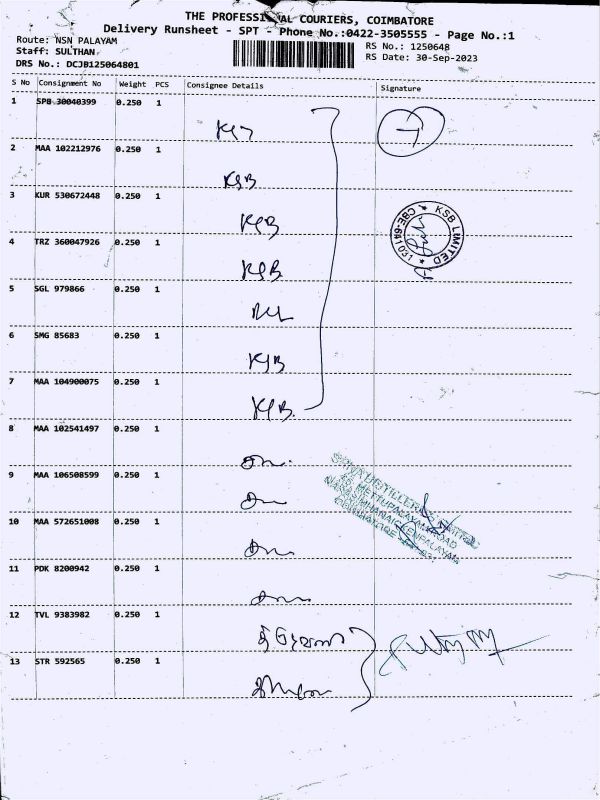 THE PROFESSIONAL COURIERS, COIMBATORE
Delivery Runsheet - SPT - Phone No.:0422-3505555 - Page No.:1
Route: NSN PALAYAM
RS No.: 1250648
Staff: SULTHAN
RS Date: 30-Sep-2023
DRS No.: DCJB125064801
S No Consignment No Weight PCS Consignee Details Signature
1 SPB 30040399 0.250 1
2 MAA 102212976 0.250 1
KSB
3 KUR 530672448 0.250 1
KSB
4 TRZ 360047926 0.250 1
KSB
5 SGL 979866 0.250 1
6 SMG 85683 0.250 1
KSB
7 MAA 104900075 0.250 1
KSB
KSB LIMITED
CBE-641 031
8 MAA 102541497 0.250 1
9 MAA 106508599 0.250 1
10 MAA 572651008 0.250 1
METTUPALAYAM ROAD
NARASIMHANAICKENPALAYAM
COIMBATORE
11 PDK 8200942 0.250 1
12 TVL 9383982 0.250 1
13 STR 592565 0.250 1